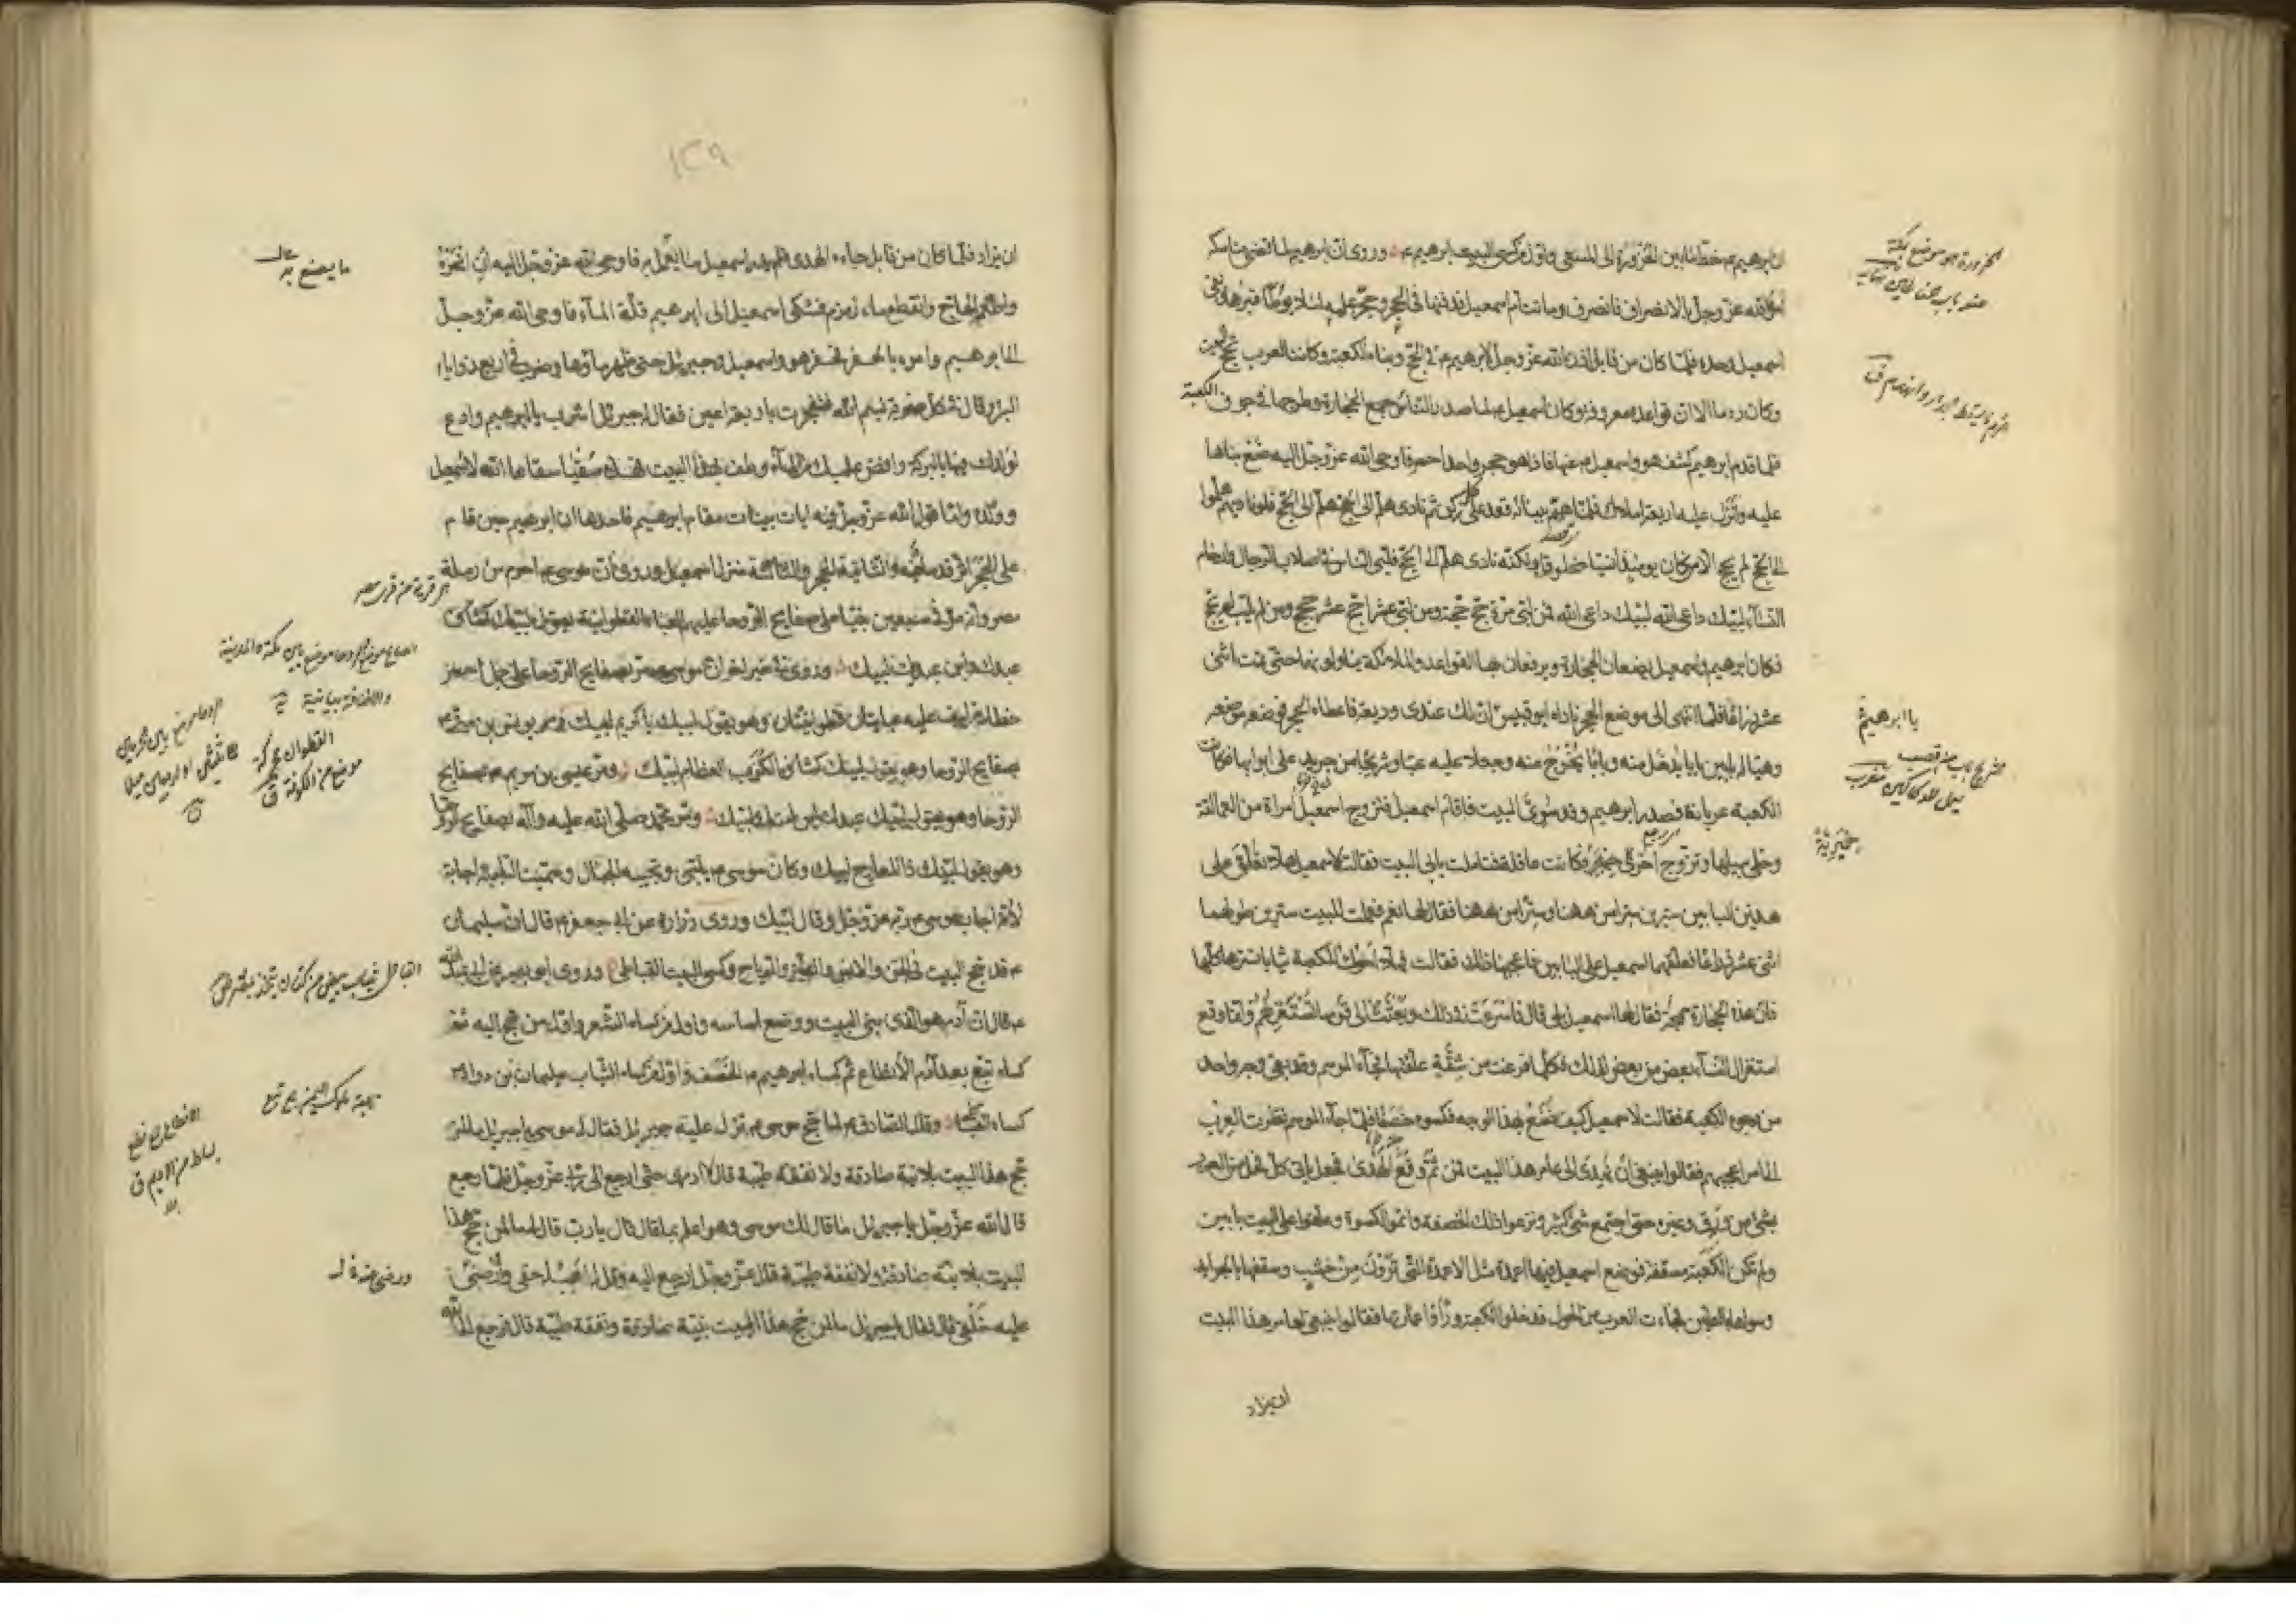 ان ابرهيم ع خط ما بين الحزورة الى المسعى واول من كسى البيت ابرهيم ع وروى ان ابرهيم لما قضى مناسكه
امره الله عز وجل بالانصراف فانصرف وماتت ام اسمعيل فدفنها في الحجر وحجر عليها لئلا يوطأ قبرها وبقى
اسمعيل وحده فلما كان من قابل اذن الله عز وجل لابرهيم ع في الحج وبناء الكعبة وكانت العرب تحج البيت
وكان ردما الا ان قواعده معروفة وكان اسمعيل لما صدر الناس جمع الحجارة وطرحها في جوف الكعبة
فلما قدم ابرهيم كشف هو واسمعيل ع عنها فاذا هو حجر واحد احمر فاوحى الله عز وجل اليه ضع بناها
عليه وانزل عليه اربعة املاك فلما تم بناؤه قعد على كل ركن ثم نادى هلم الى الحج هلم الى الحج فلو ناداهم هلموا
الى الحج لم يحج الا من كان يومئذ انسيا مخلوقا ولكنه نادى هلم الى الحج فلبى الناس في اصلاب الرجال وارحام
النساء لبيك داعى الله لبيك داعى الله فمن لبى مرة حج حجة ومن لبى عشرا حج عشر حجج ومن لم يلب لم يحج
فكان ابرهيم واسمعيل يضعان الحجارة ويرفعان بها القواعد والملائكة يناولونهما حتى تمت اثنى
عشر ذراعا فلما انتهى الى موضع الحجر ناداه ابو قبيس ان لك عندى وديعة فاعطاه الحجر فوضعه موضعه
وهيأ له بابين بابا يدخل منه وبابا يخرج منه وجعلا عليه عتبا وشريجا من جريد على ابوابها فكانت
الكعبة عريانة فصدر ابرهيم وقد سوى البيت فاقام اسمعيل فتزوج اسمعيل امراة من العمالقة
وخلى سبيلها وتزوج اخرى حميرية فكانت عاقلة فتاملت بابى البيت فقالت لاسمعيل هلا تعلق على
هذين البابين سترين ستر امن ههنا وستر امن ههنا فقال لها نعم فعملت للبيت سترين طولهما
اثنى عشر ذراعا فعلقهما اسمعيل على البابين فاعجبها ذلك فقالت فهلا احوك للكعبة ثيابا تسترها كلها
فان هذه الحجارة سمجة فقال لها اسمعيل بلى قال فاسرعت في ذلك وبعثت الى قومها تستغزلهم وانما وقع
استغزال النساء بعضهن من بعض لذلك فكلما فرغت من شقة علقتها فجاء الموسم وقد بقى وجه واحد
من وجوه الكعبة فقالت لاسمعيل كيف نصنع بهذا الوجه فكسوه خصفا فلما جاء الموسم نظرت العرب
الى امر اعجبهم فقالوا ينبغى ان يهدى الى عامر هذا البيت فمن ثم وقع الهدى فجعل ياتى كل فخذ من العرب
بشئ من ورق وغيره حتى اجتمع شئ كثير ونزعوا ذلك الخصفة واتموا الكسوة وعلقوا على البيت بابين
ولم تكن الكعبة مسقفة فوضع اسمعيل فيها اعمدة مثل الاعمدة التى ترون من خشب وسقفها بالجرايد
وسواها بالطين فجاءت العرب من الحول فدخلوا الكعبة وراوا عمارتها فقالوا ينبغى لعامر هذا البيت
ان يزاد
يا ابرهيم
حميرية
١٢٩
ان يزاد فلما كان من قابل جاءه الهدى فلم يدر اسمعيل ما يعمل به فاوحى الله عز وجل اليه ان انحره
واطعم الحاج وانقطع ماء زمزم فشكى اسمعيل الى ابرهيم قلة الماء فاوحى الله عز وجل
الى ابرهيم وامره بالحفر فحفر هو واسمعيل وجبرئيل حتى ظهر ماؤها وضرب في اربع زوايا
البئر وقال في كل ضربة بسم الله فتفجرت باربعة اعين فقال له جبرئيل اشرب يا ابرهيم وادع
لولدك فيها بالبركة وافض عليك من الماء وطف بهذا البيت فهذه سقيا سقاها الله لاسمعيل
وولده واما قول الله عز وجل فيه ايات بينات مقام ابرهيم فاحدها ان ابرهيم حين قام
على الحجر اثر قدماه فيه والثانية الحجر والثالثة منزل اسمعيل وروى ان موسى ع احرم من رملة
مصر وانه مر في سبعين نبيا على صفايح الروحا عليهم العباء القطوانية يقول لبيك
عبدك وابن عبديك لبيك وروى في خبر اخر ان موسى ع مر بصفايح الروحا على جمل احمر
خطامه ليف عليه عبايتان قطوانيتان وهو يقول لبيك يا كريم لبيك ومر يونس بن متى ع
بصفايح الروحا وهو يقول لبيك كشاف الكرب العظام لبيك ومر عيسى بن مريم ع بصفايح
الروحا وهو يقول لبيك عبدك ابن امتك لبيك ومر محمد صلى الله عليه واله بصفايح الروحا
وهو يقول لبيك ذا المعارج لبيك وكان موسى ع يلبى وتجيبه الجبال وسميت التلبية اجابة
لانه اجاب موسى ع ربه عز وجل وقال لبيك وروى زرارة عن ابى جعفر ع قال ان سليمان
ع قد حج البيت في الجن والانس والطير والرياح وكسى البيت القباطى وروى ابو بصير عن ابى عبد الله
ع قال ان آدم هو الذى بنى البيت ووضع اساسه واول من كساه الشعر واول من حج اليه ثم
كساه تبع بعد آدم الانطاع ثم كساه ابرهيم ع الخصف واول من كساه الثياب سليمان بن داود ع
كساه القباطى وقال الصادق ع لما حج موسى ع نزل عليه جبرئيل فقال له موسى يا جبرئيل ما لمن
حج هذا البيت بلا نية صادقة ولا نفقة طيبة قال لا ادرى حتى ارجع الى ربى عز وجل فلما رجع
قال الله عز وجل يا جبرئيل ما قال لك موسى وهو اعلم بما قال قال يا رب قال لى ما لمن حج هذا
البيت بلا نية صادقة ولا نفقة طيبة قال عز وجل ارجع اليه وقل له اهب له حقى وارضى
عليه خلقى قال فقال يا جبرئيل ما لمن حج هذا البيت بنية صادقة ونفقة طيبة قال فرجع الى الله
ما يصنع به